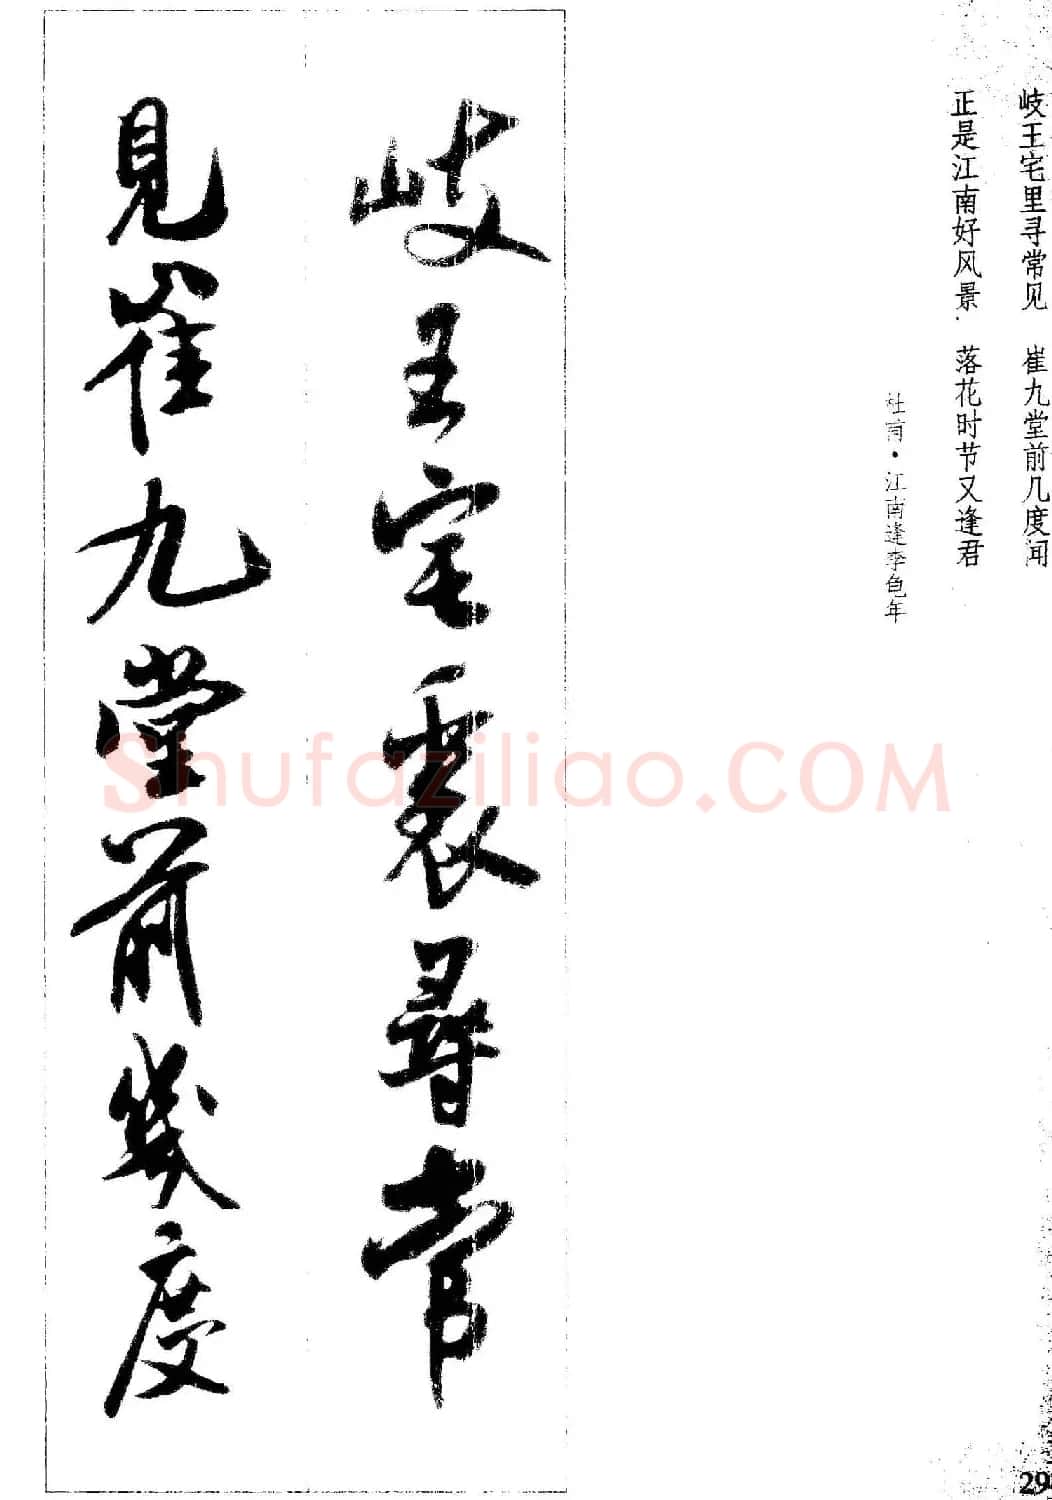 岐王宅里寻常见 崔九堂前几度闻
正是江南好风景 落花时节又逢君
杜甫·江南逢李龟年
岐王宅裏尋常
見崔九堂前幾度
Shufaziliao.COM
29